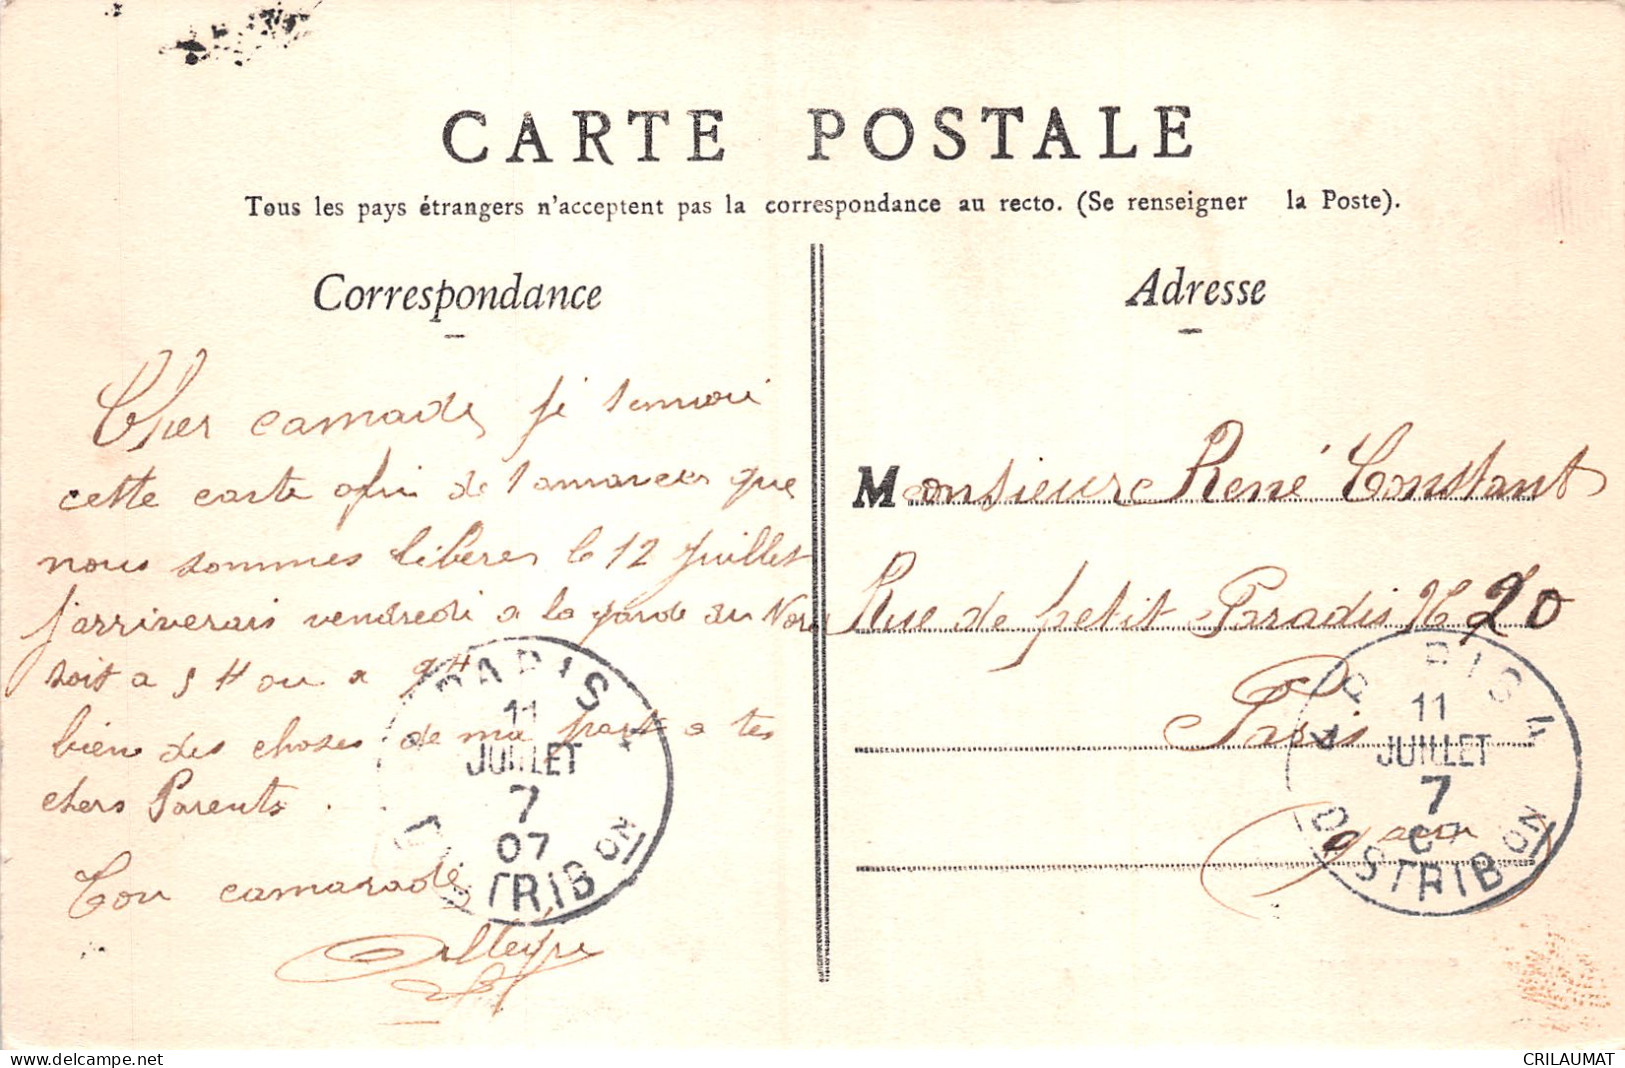 CARTE POSTALE
Tous les pays étrangers n'acceptent pas la correspondance au recto. (Se renseigner la Poste).
Correspondance
Cher camarade je t'envoi
cette carte afin de t'anoncer que
nous sommes libéres le 12 Juillet
j'arriverais vendredi a la garde du Nord
soit a 5 H ou a 9 H
bien des choses de ma part a tes
chers Parents.
Ton camarade
Adresse
Monsieur René Constant
Rue de petit Paradis N 20
Paris
PARIS
11
JUILLET
7
07
DISTRIBON
PARIS 4
11
JUILLET
7
07
DISTRIBON
CRILAUMAT